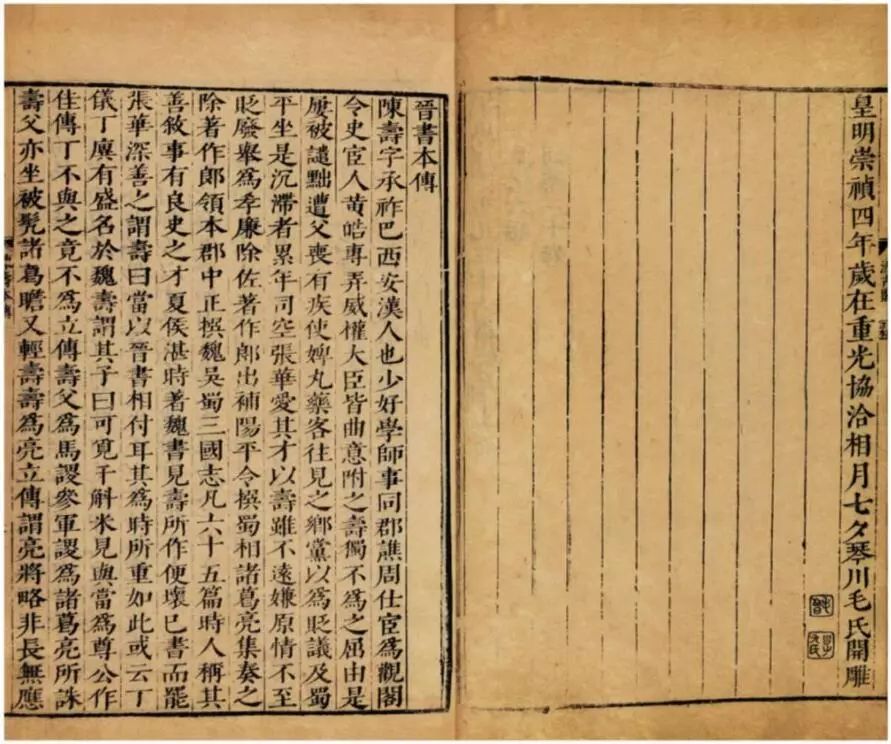 皇明崇禎四年歲在重光協洽相月七夕琴川毛氏開雕
晉書本傳
陳壽字承祚巴西安漢人也少好學師事同郡譙周仕宦爲觀閣
令史宦人黃皓專弄威權大臣皆曲意附之壽獨不爲之屈由是
屢被譴黜遭父喪有疾使婢丸藥客往見之鄉黨以爲貶議及蜀
平坐是沉滯者累年司空張華愛其才以壽雖不遠嫌原情不至
貶廢舉爲孝廉除佐著作郎出補陽平令撰蜀相諸葛亮集奏之
除著作郎領本郡中正撰魏吳蜀三國志凡六十五篇時人稱其
善敘事有良史之才夏侯湛時著魏書見壽所作便壞已書而罷
張華深善之謂壽曰當以晉書相付耳其爲時所重如此或云丁
儀丁廙有盛名於魏壽謂其子曰可覓千斛米見與當爲尊公作
佳傳丁不與之竟不爲立傳壽父爲馬謖叅軍謖爲諸葛亮所誅
壽父亦坐被髡諸葛瞻又輕壽壽爲亮立傳謂亮將略非長無應